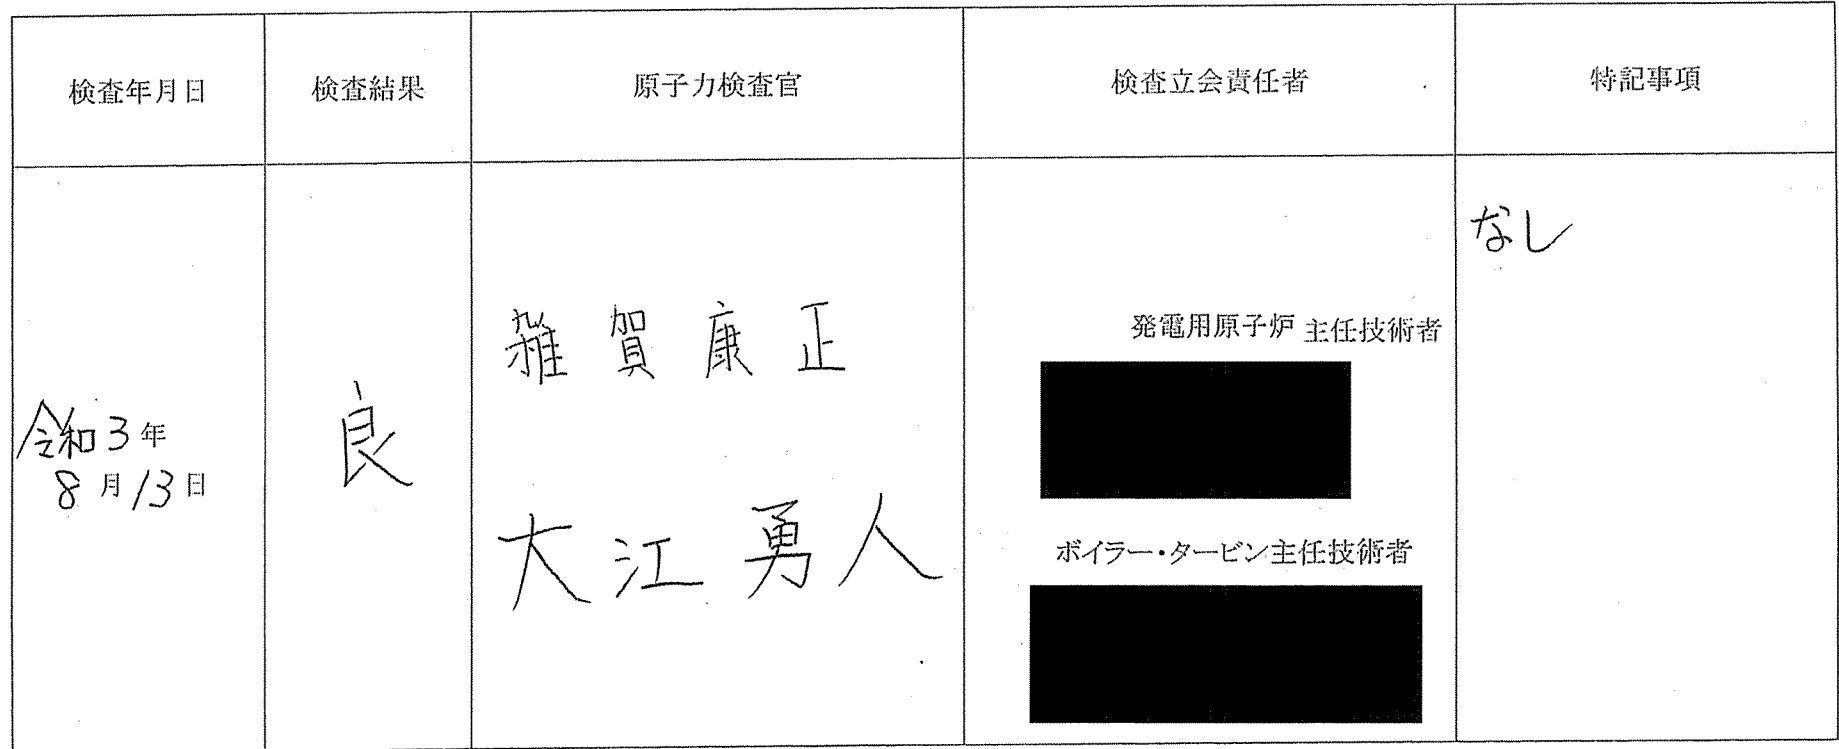 検査年月日 検査結果 原子力検査官 検査立会責任者 特記事項
令和3年
8月13日
良
雑賀康正
大江勇人
発電用原子炉 主任技術者
ボイラー・タービン主任技術者
なし